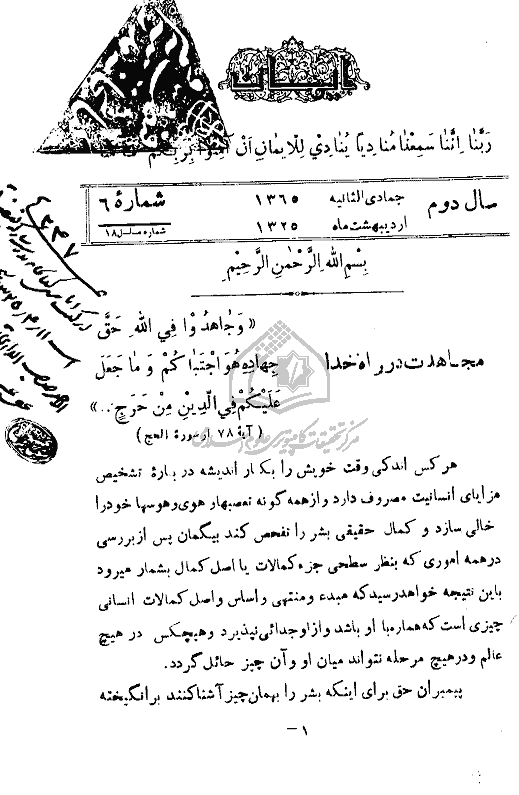 ایمان
رَبَّنٰا اِنَّنٰا سَمِعْنٰا مُنٰادِیاً یُنٰادِي لِلْایمٰانِ اَنْ آمِنُوا بِرَبِّکُمْ
سال دوم
جمادی الثانیه ۱۳۶۵
اردیبهشت ماه ۱۳۲۵
شمارهٔ ۶
شماره مسلسل ۱۸
بِسْمِ اللهِ الرَّحْمٰنِ الرَّحِیْمِ
مجاهدت در راه خدا
« وَجٰاهِدُوْا فِي اللهِ حَقَّ
جِهٰادِهِ هُوَ اجْتَبٰا کُمْ وَ مٰا جَعَلَ
عَلَیْکُمْ فِي الدِّیْنِ مِنْ حَرَجٍ ... »
( آیهٔ ۷۸ از سورهٔ الحج )
مرکز تحقیقات کامپیوتری علوم اسلامی
هر کس اندکی وقت خویش را بکار اندیشه در بارهٔ تشخیص
مزایای انسانیت مصروف دارد و از همه گونه تعصبهار هوی وهوسها خودرا
خالی سازد و کمال حقیقی بشر را تفحص کند بیگمان پس از بررسی
در همه اموری که بنظر سطحی جزء کمالات یا اصل کمال بشمار میرود
باین نتیجه خواهد رسید که مبدء ومنتهی و اساس واصل کمالات انسانی
چیزی است که هماره با او باشد و از او جدائی نپذیرد و هیچکس در هیچ
عالم ودر هیچ مرحله نتواند میان او و آن چیز حائل گردد.
پیمبران حق برای اینکه بشر را بهمان چیز آشنا کنند برانگیخته
۱ –